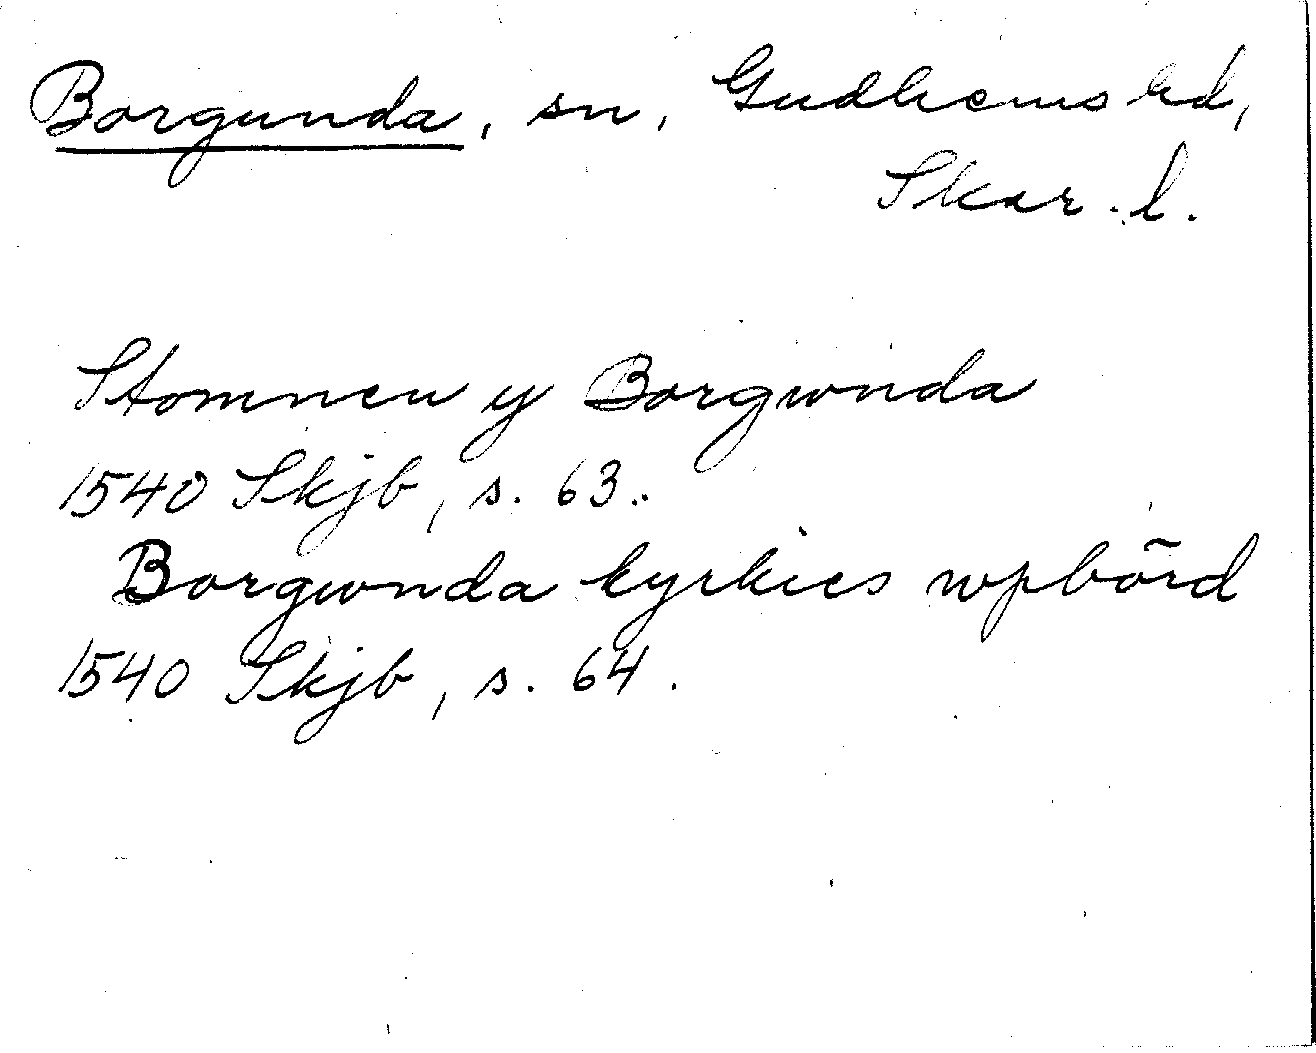 Borgunda, sn, Gudhems hd,
Skar. l.
Stomnen y Borgwnda
1540 Skjb, s. 63.
Borgwnda kyrkies wpbörd
1540 Skjb, s. 64.